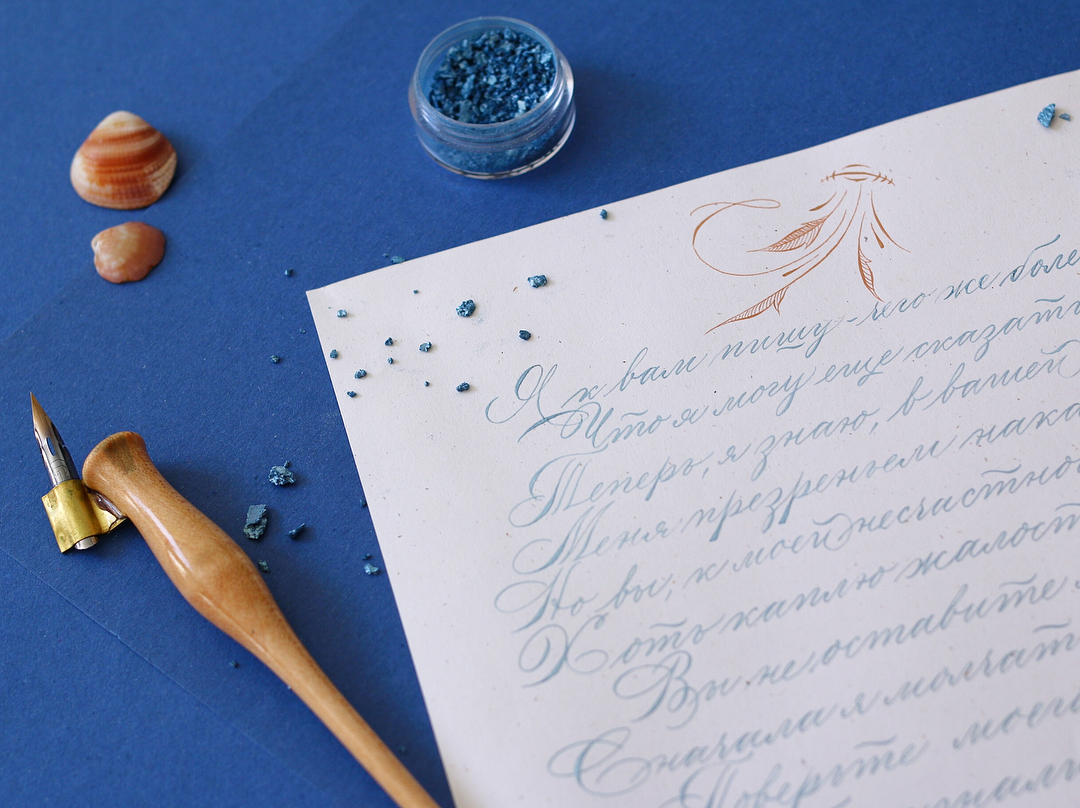 Я к вам пишу - чего же боле
Что я могу еще сказать
Теперь, я знаю, в вашей
Меня презреньем нака
Но вы, к моей несчастно
Хоть каплю жалост
Вы не оставите
Сначала я молчат
Поверьте моего